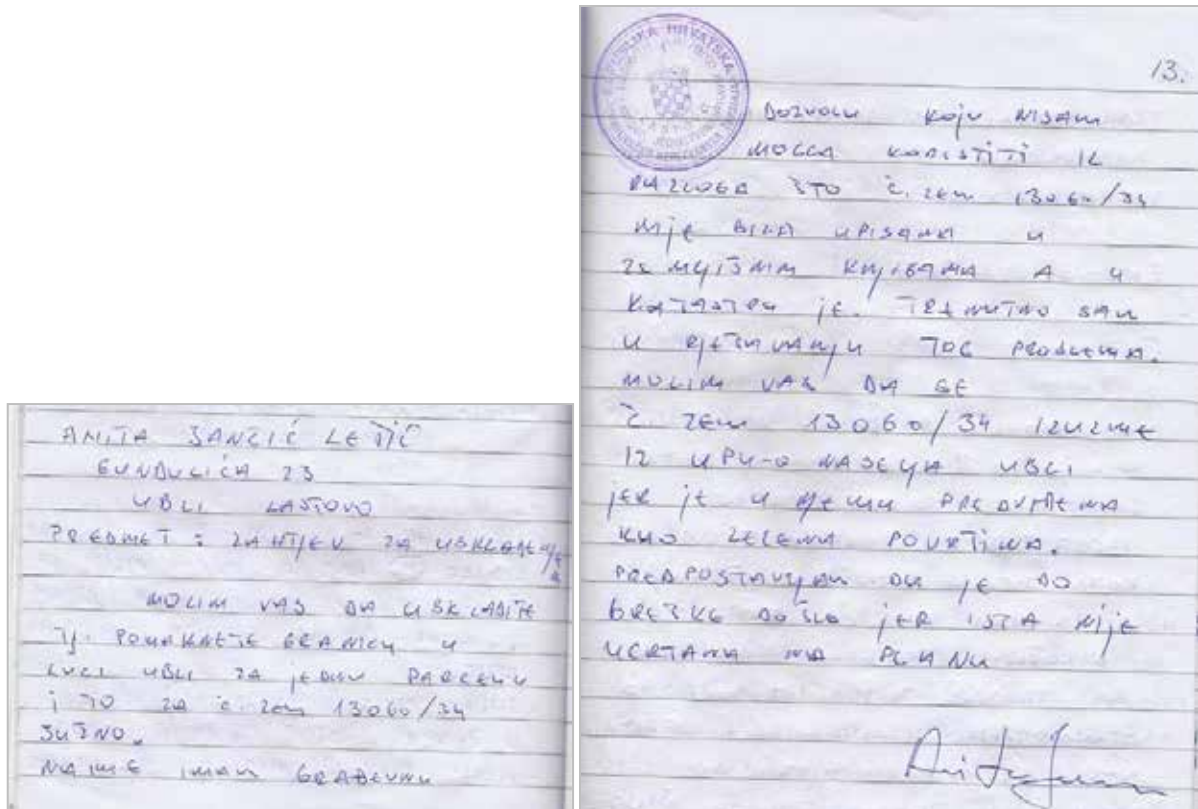 ANITA JANČIĆ LEŠIĆ
GUNDULIĆA 23
UBLI LASTOVO
PREDMET: ZAHTJEV ZA USKLAĐENJE
MOLIM VAS DA USKLADITE
TJ. POMAKNETE GRANICU U
LUCI UBLI ZA JEDNU PARCELU
I TO ZA Č. ZEM 13060/34
JUŽNO.
NAIME IMAM GRAĐEVNU
REPUBLIKA HRVATSKA
13.
DOZVOLU KOJU NISAM
MOGLA KORISTITI IZ
RAZLOGA ŠTO Č. ZEM 13060/34
NIJE BILA UPISANA U
ZEMLJIŠNIM KNJIGAMA A U
KATASTRU JE. TRENUTNO SAM
U RJEŠAVANJU TOG PROBLEMA.
MOLIM VAS DA SE
Č. ZEM 13060/34 IZUZME
IZ UPU-A NASELJA UBLI
JER JE U NJEMU PREDVIĐENA
KAO ZELENA POVRŠINA.
PREDPOSTAVLJAM DA JE DO
GREŠKE DOŠLO JER ISTA NIJE
UCRTANA NA PLANU